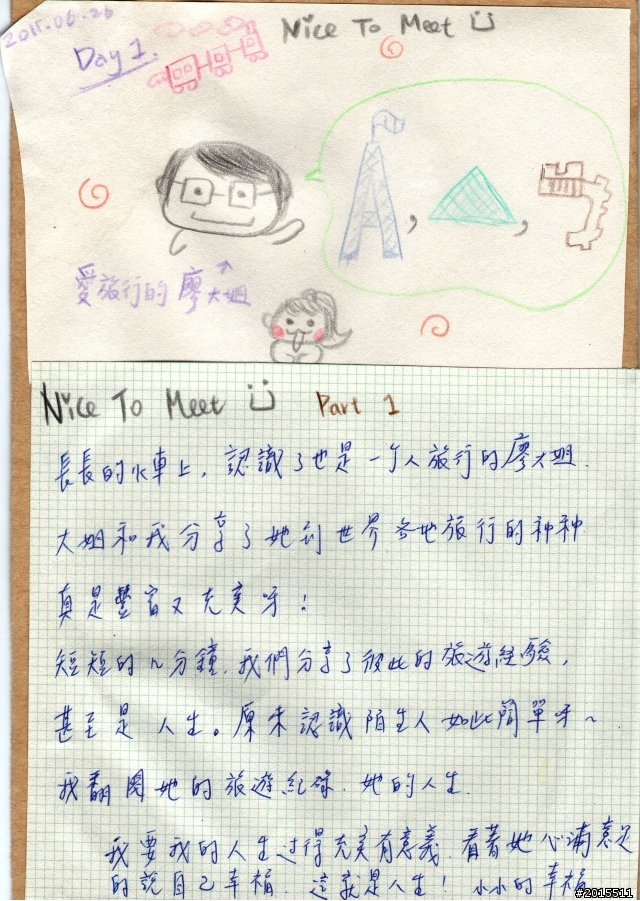 2015.06.26
Day 1.
Nice To Meet
愛旅行的廖大姐
Nice To Meet Part 1
長長的火車上，認識了也是一个人旅行的廖大姐.
大姐和我分享了她到世界各地旅行的种种
真是豐富又充實呀！
短短的n分鐘.我們分享了彼此的旅遊經驗，
甚至是人生。原來認識陌生人如此簡單呀~
我翻閱她的旅遊紀錄.她的人生.
我要我的人生过得充實有意義.看著她心滿意足
的說自己幸福.這就是人生！小小的幸福
#2015511